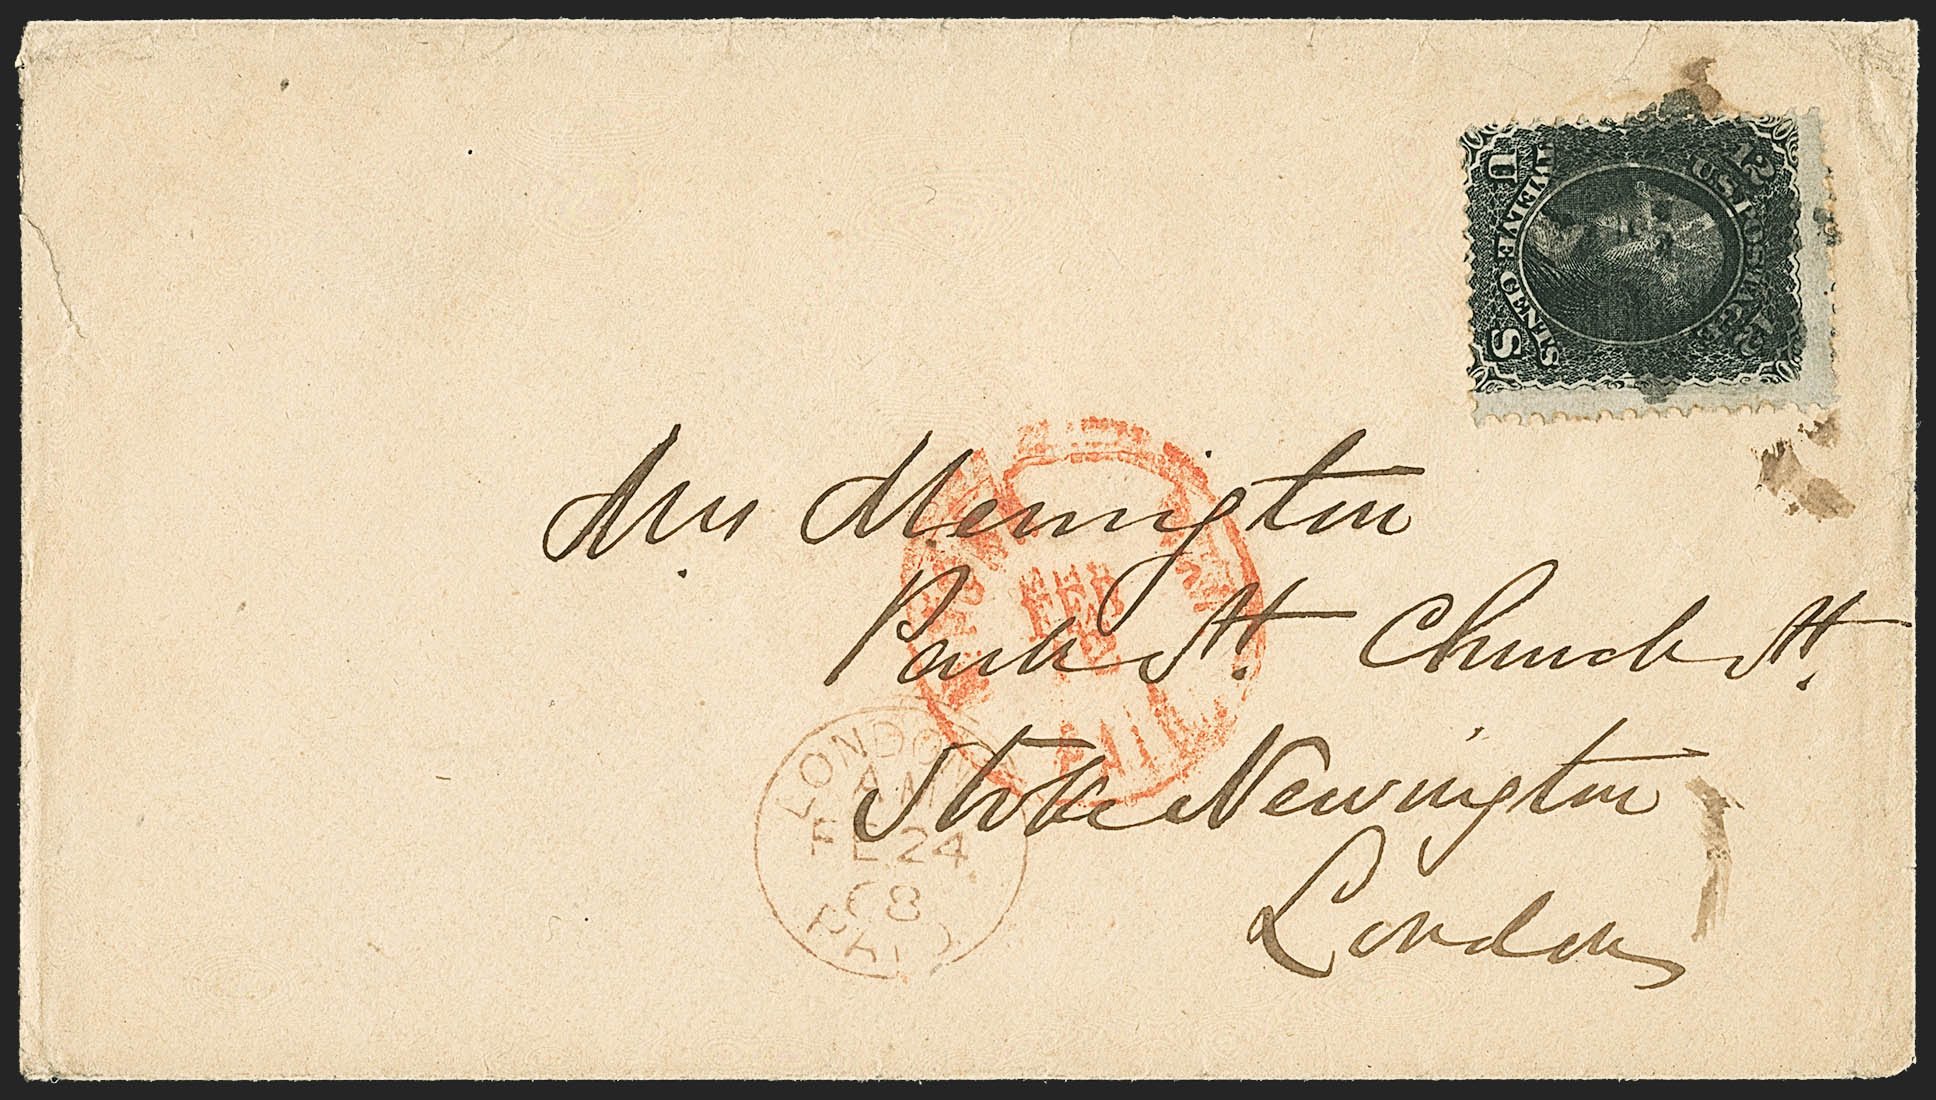 12 U.S. POSTAGE 12
TWELVE CENTS
U S
Mrs Merrington
Park St. Church St.
Stoke Newington
London
FEB
12
PAID
LONDON
AM
FE 24
68
PAID